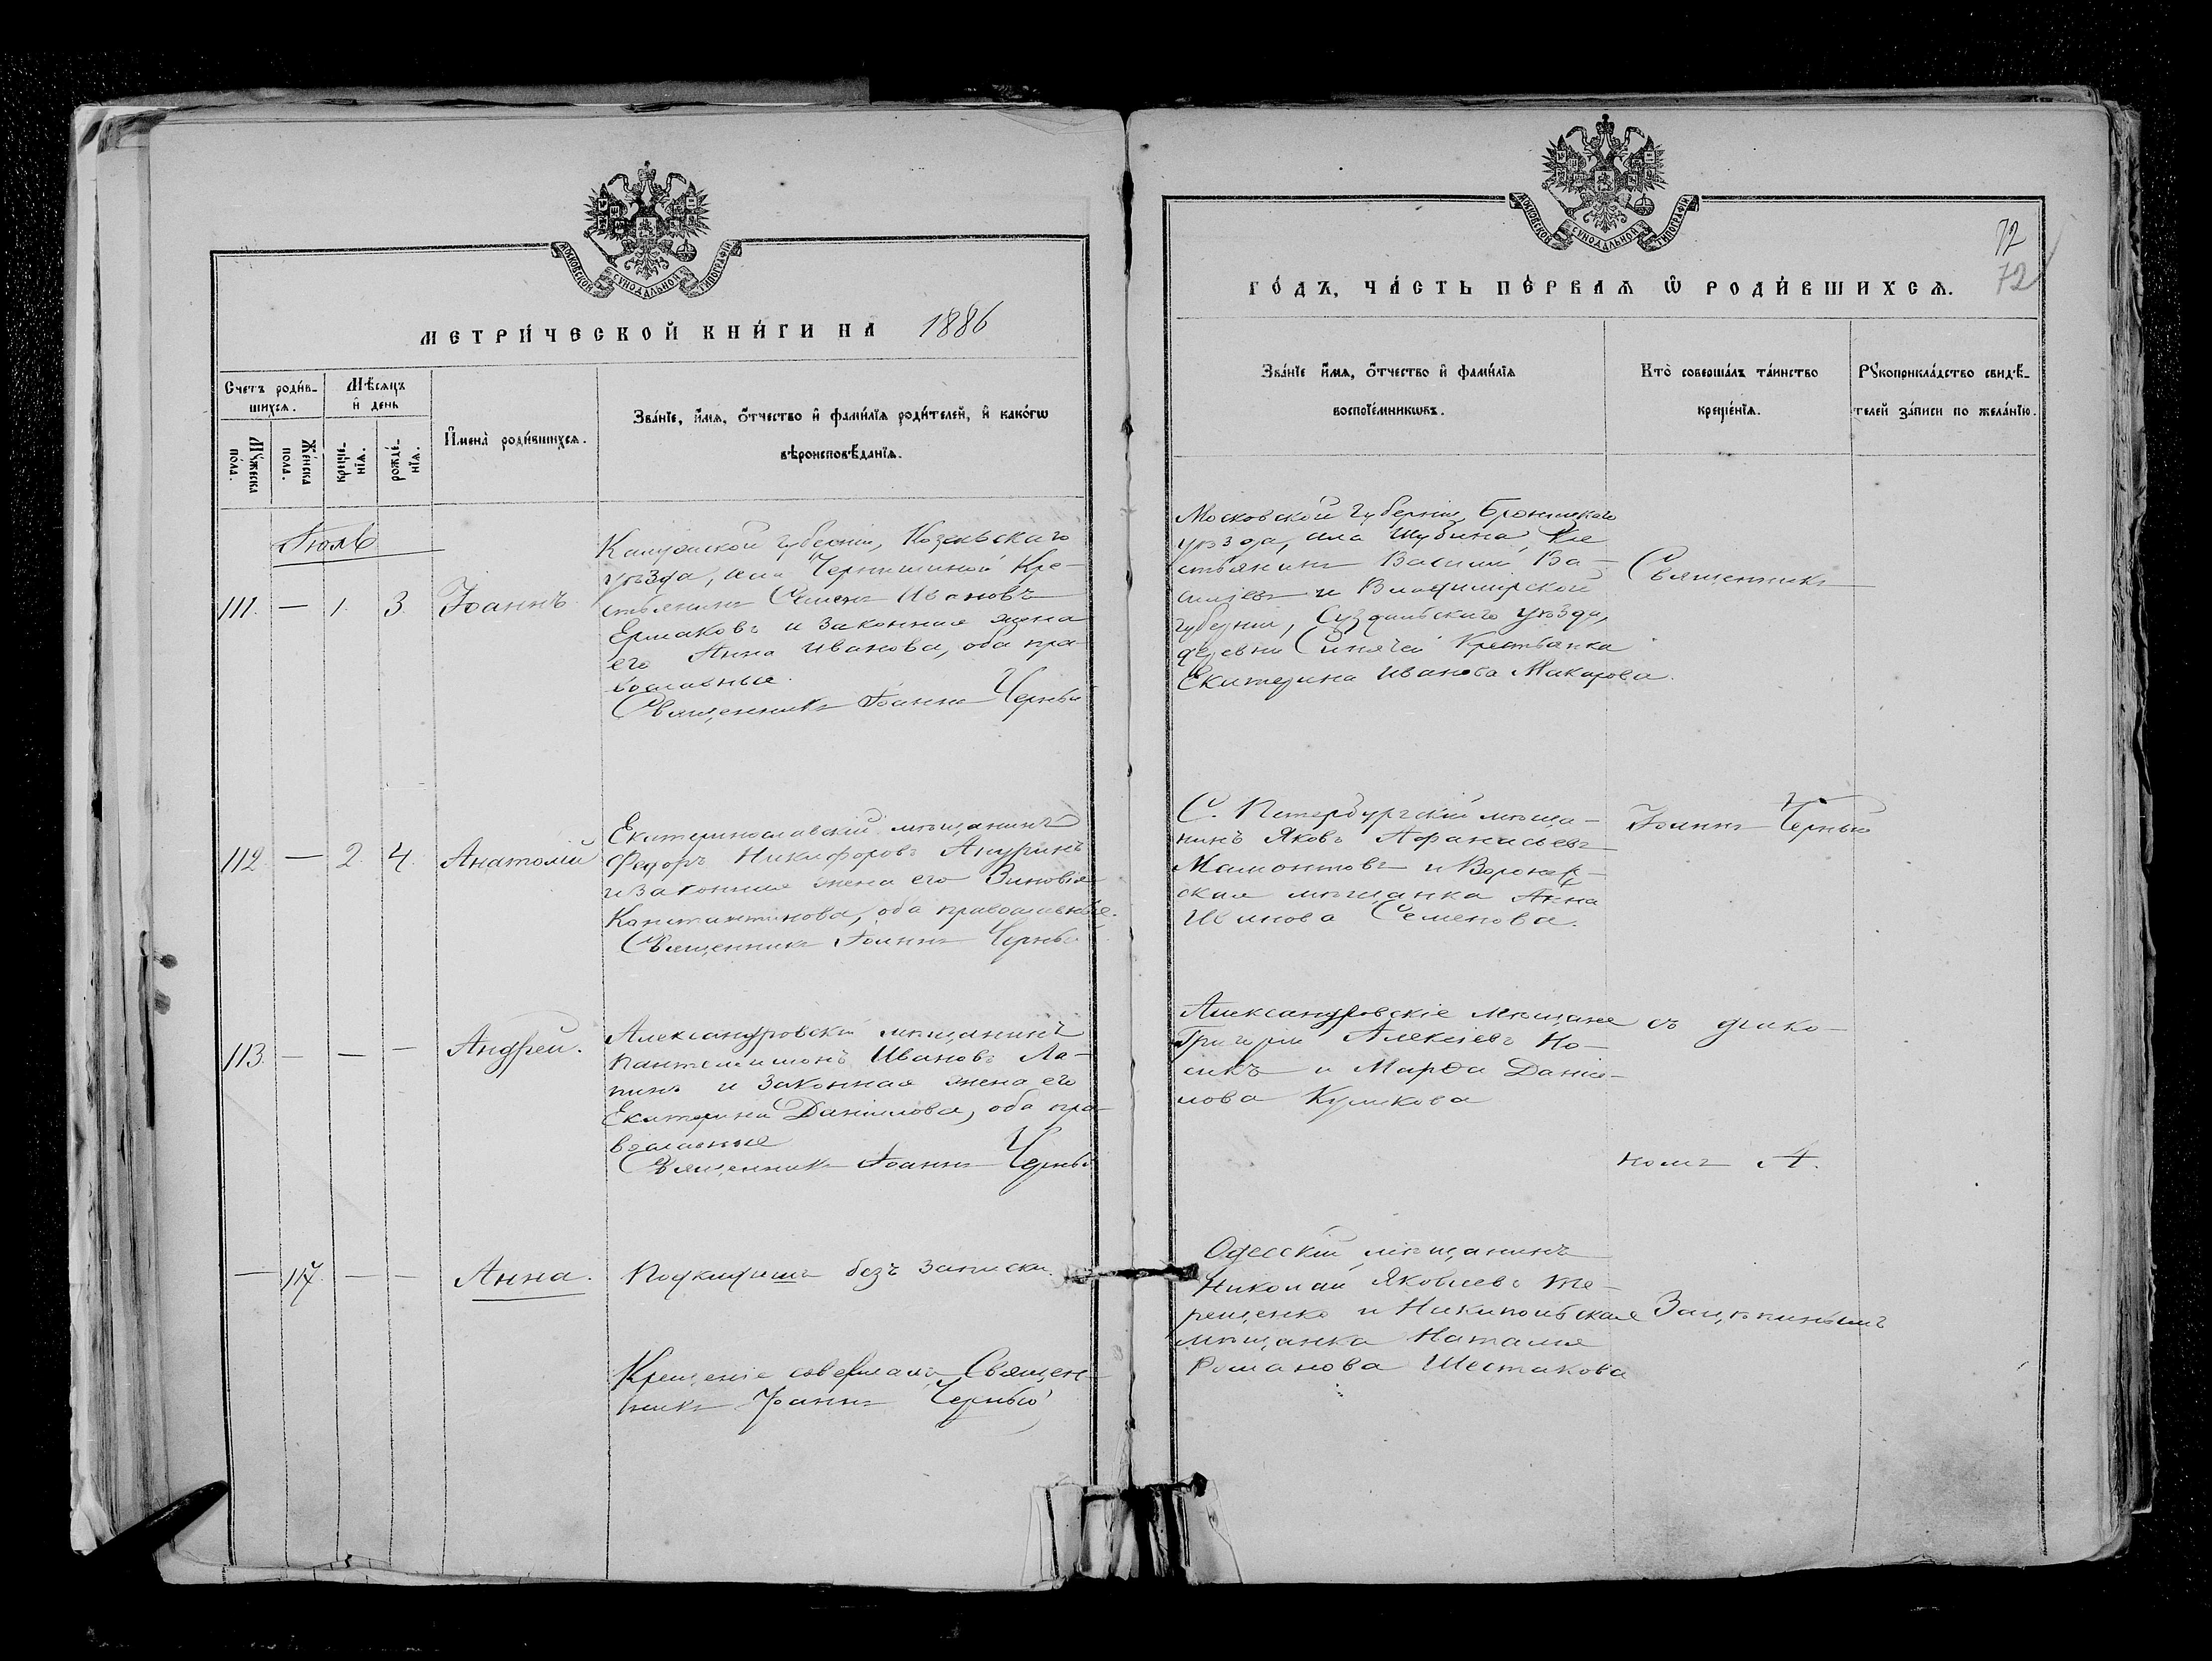 МОСКОВСКОЙ СѴНОДАЛЬНОЙ ТИПОГРАФІИ
МЕТРИ́ЧЕСКОЙ КНИ́ГИ НА 1886
Счетъ роди́в-
шихсѧ.
Мꙋ́жеска
пола.
Же́нска
пола.
Мѣ́сѧцъ
и҆ день
креще́-
нїѧ.
рожде́-
нїѧ.
И҆мена̀ роди́вшихсѧ.
Зва́нїе, и҆́мѧ, ѻ҆́тчество и҆ фами́лїѧ роди́телей, и҆ како́гѡ
вѣроисповѣ́данїѧ.
Іюль
111. — 1. 3. Іоаннъ.
Калужской губерніи, Козельскаго
уѣзда, села Чернышиной Кре-
стьянинъ Семенъ Ивановъ
Ермаковъ и законная жена
его Анна Иванова, оба пра-
вославные.
Священникъ Іоаннъ Черный
112. — 2. 4. Анатолій
Екатеринославскій мѣщанинъ
Федоръ Никифоровъ
и законная жена его Зиновія
Константинова, оба православные.
Священникъ Іоаннъ Черный
113. — — — Андрей.
Александровскій мѣщанинъ
Пантелимонъ Ивановъ Ла-
пинъ и законная жена его
Екатерина Даніилова, оба пра-
вославные
Священникъ Іоаннъ Черный
— 117. — — Анна.
Подкидышъ безъ записки.
Крещеніе совершалъ Священ-
никъ Іоаннъ Черный
МОСКОВСКОЙ СѴНОДАЛЬНОЙ ТИПОГРАФІИ
72
72
ГО́ДЪ, ЧА́СТЬ ПЕ́РВАѦ Ѡ҆ РОДИ́ВШИХСѦ.
Зва́нїе и҆́мѧ, ѻ҆́тчество и҆ фами́лїѧ
воспрїе́мникѡвъ.
Кто̀ соверша́лъ та́инство
креще́нїѧ.
Рꙋкоприкла́дство свидѣ́-
телей за́писи по жела́нїю.
Московской губерніи, Бронницкаго
уѣзда, села Шубина, Кре
стьянинъ Василій Ва-
сильевъ и Владимирской
губерніи, Суздальскаго уѣзда,
деревни Крестьянка
Екатерина Иванова Макарова.
Священникъ
С. Петербургскій мѣща-
нинъ Яковъ Афанасьевъ
Мамонтовъ и Воронеж-
ская мѣщанка Анна
Иванова Семенова.
Іоаннъ Черный
Александровскіе мѣщане
Григорій Алексіевъ Но-
сикъ и Марѳа Даніи-
лова Куликова
съ діако-
номъ А.
Одесскій мѣщанинъ
Николай Яковлевъ Те-
рещенко и Никипольская
мѣщанка Наталія
Романова Шестакова